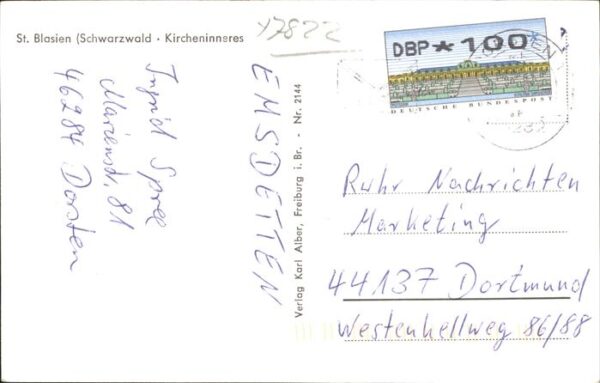 St. Blasien (Schwarzwald · Kircheninneres
Ingrid Spree
Marienstr. 81
46284 Dorsten
EMSDETTEN
Verlag Karl Alber, Freiburg i. Br. - Nr. 2144
DBP * 100
DEUTSCHE BUNDESPOST
Ruhr Nachrichten
Marketing
44137 Dortmund
Westenhellweg 86/88